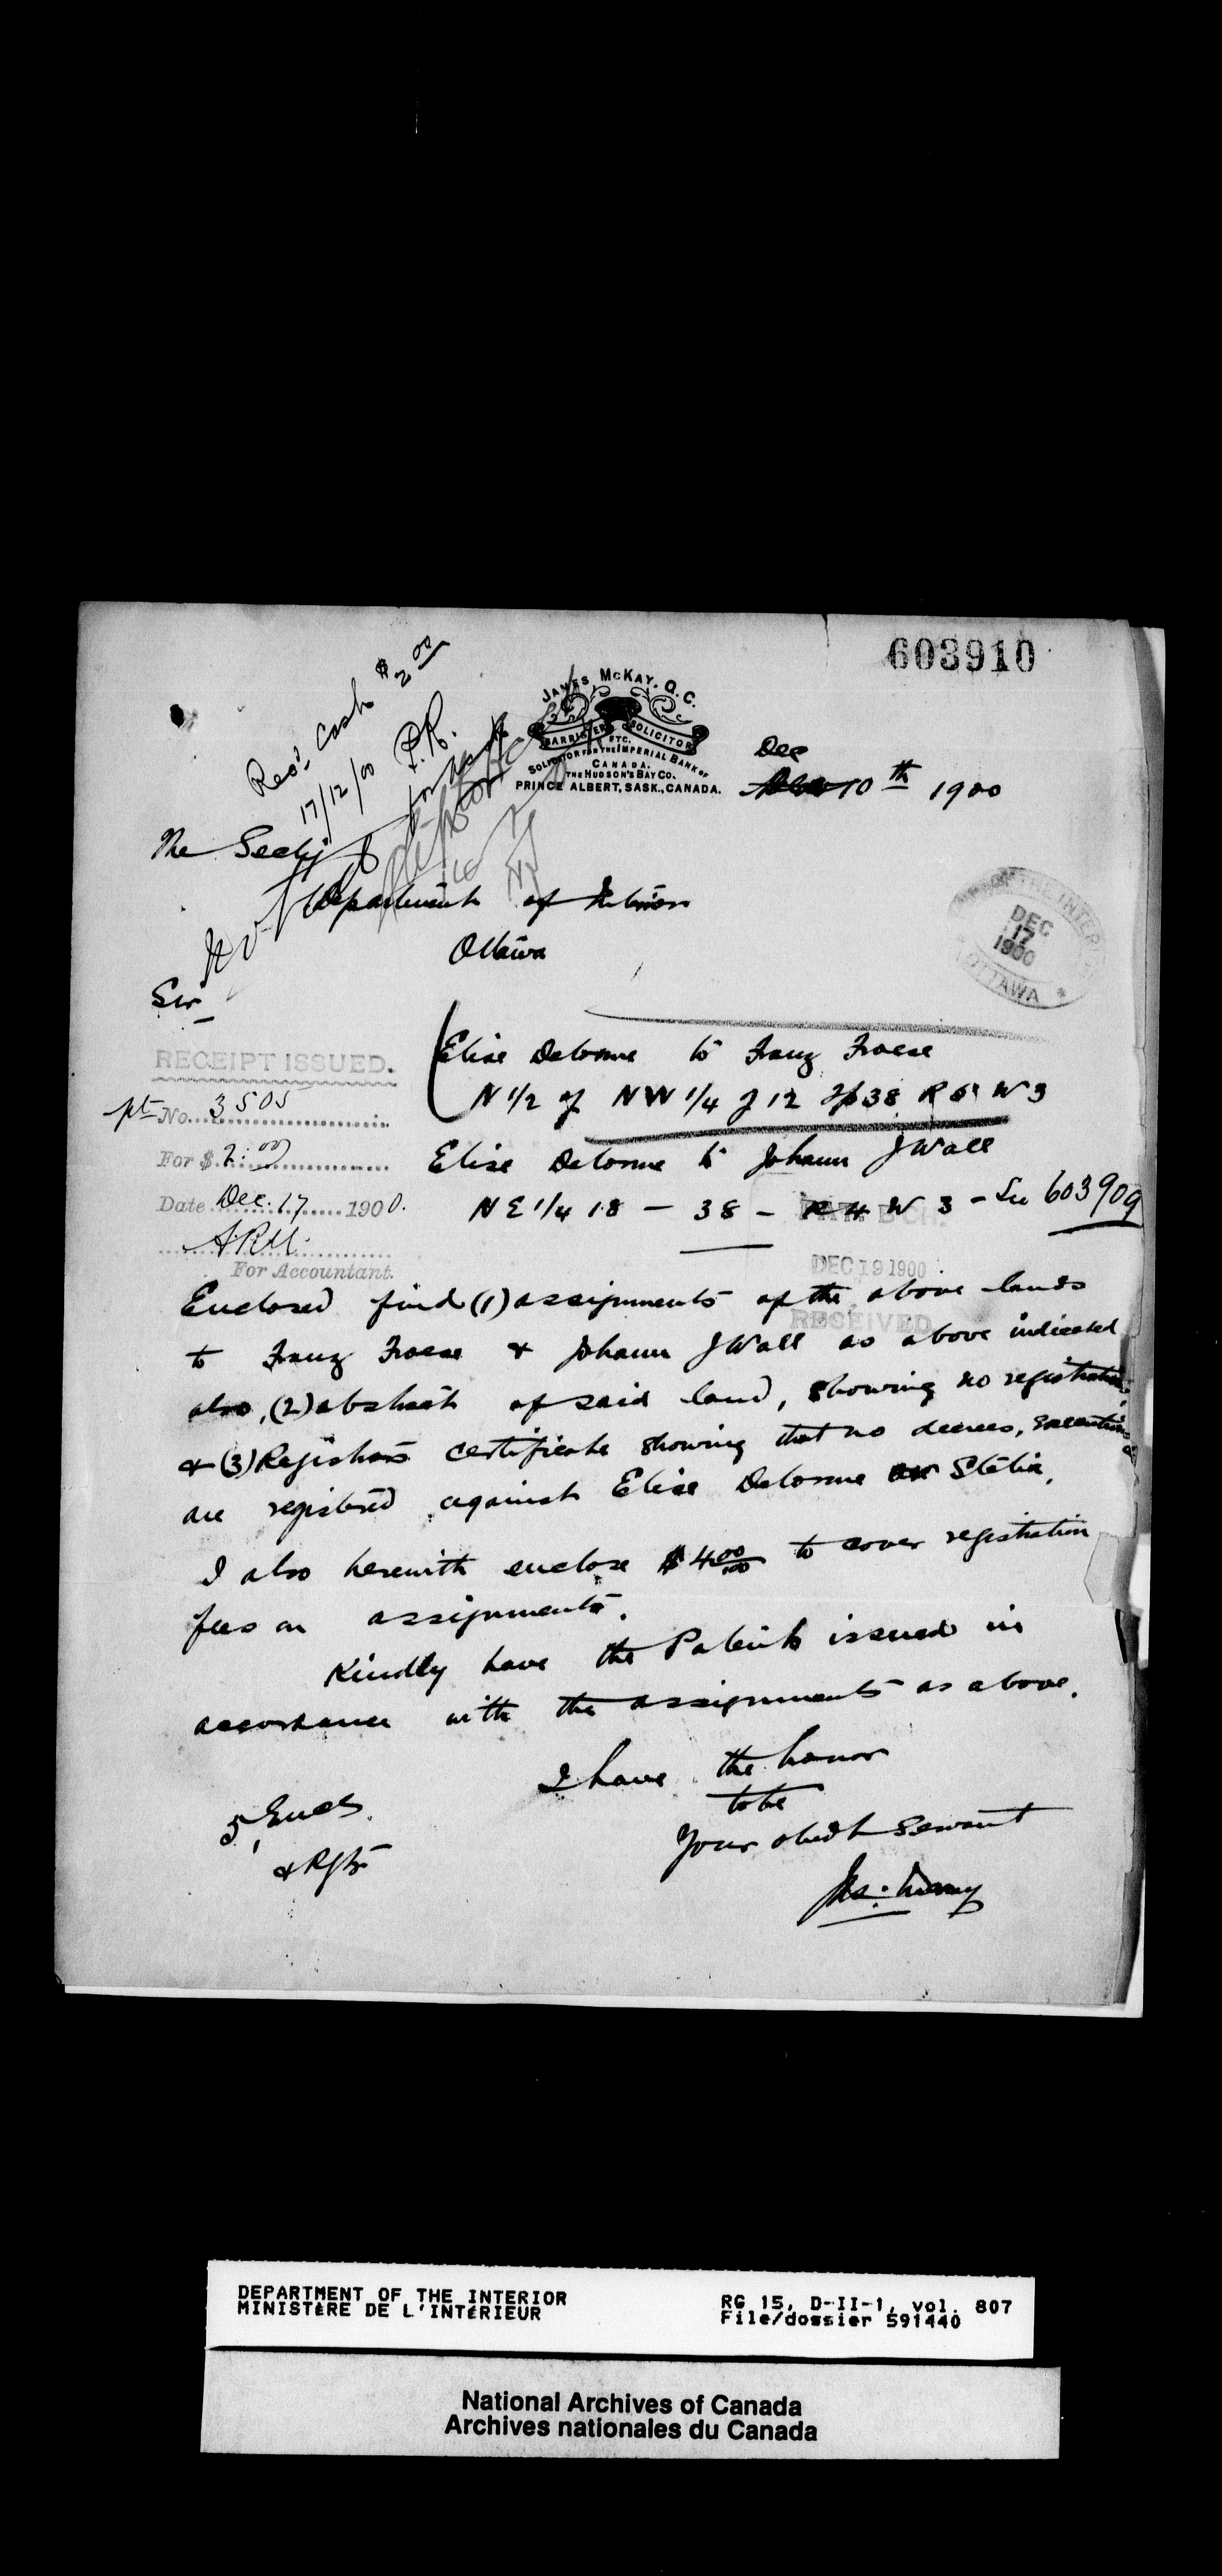 603910
Rec'd Cash $2.00
17/12/00 P.R.
JAMES McKAY, Q.C.
BARRISTER SOLICITOR
ETC.
SOLICITOR FOR THE IMPERIAL BANK OF
CANADA.
THE HUDSON'S BAY CO.
PRINCE ALBERT, SASK., CANADA.
Dec
10th 1900
The Secty
Department of Interior
Ottawa
THE INTERIOR
DEC
17
1900
OTTAWA *
Sir
RECEIPT ISSUED.
pt No. 3505
For $ 2.00
Date Dec. 17 1900.
A.R.M.
For Accountant.
Elise Delorme to Franz Froese
N 1/2 of NW 1/4 of 12 Tp 38 R 5 W 3
Elise Delorme to Johann J Wall
N E 1/4 18 - 38 - R 4 W 3 - See 603909
DEC 19 1900
RECEIVED
Enclosed find (1) assignments of the above lands
to Franz Froese & Johann J Wall as above indicated
also, (2) abstract of said land, showing no registration,
& (3) Registrars certificate showing that no decrees, executions &c
are registered against Elise Delorme or Stelia.
I also herewith enclose $4.00 to cover registration
fees on assignments.
Kindly have the Patents issued in
accordance with the assignments as above.
I have the honor
to be
Your obedt Servant
Jas. McKay
5 Encls.
& Rgtr
DEPARTMENT OF THE INTERIOR
MINISTÈRE DE L'INTÉRIEUR
RG 15, D-II-1, vol. 807
File/dossier 591440
National Archives of Canada
Archives nationales du Canada